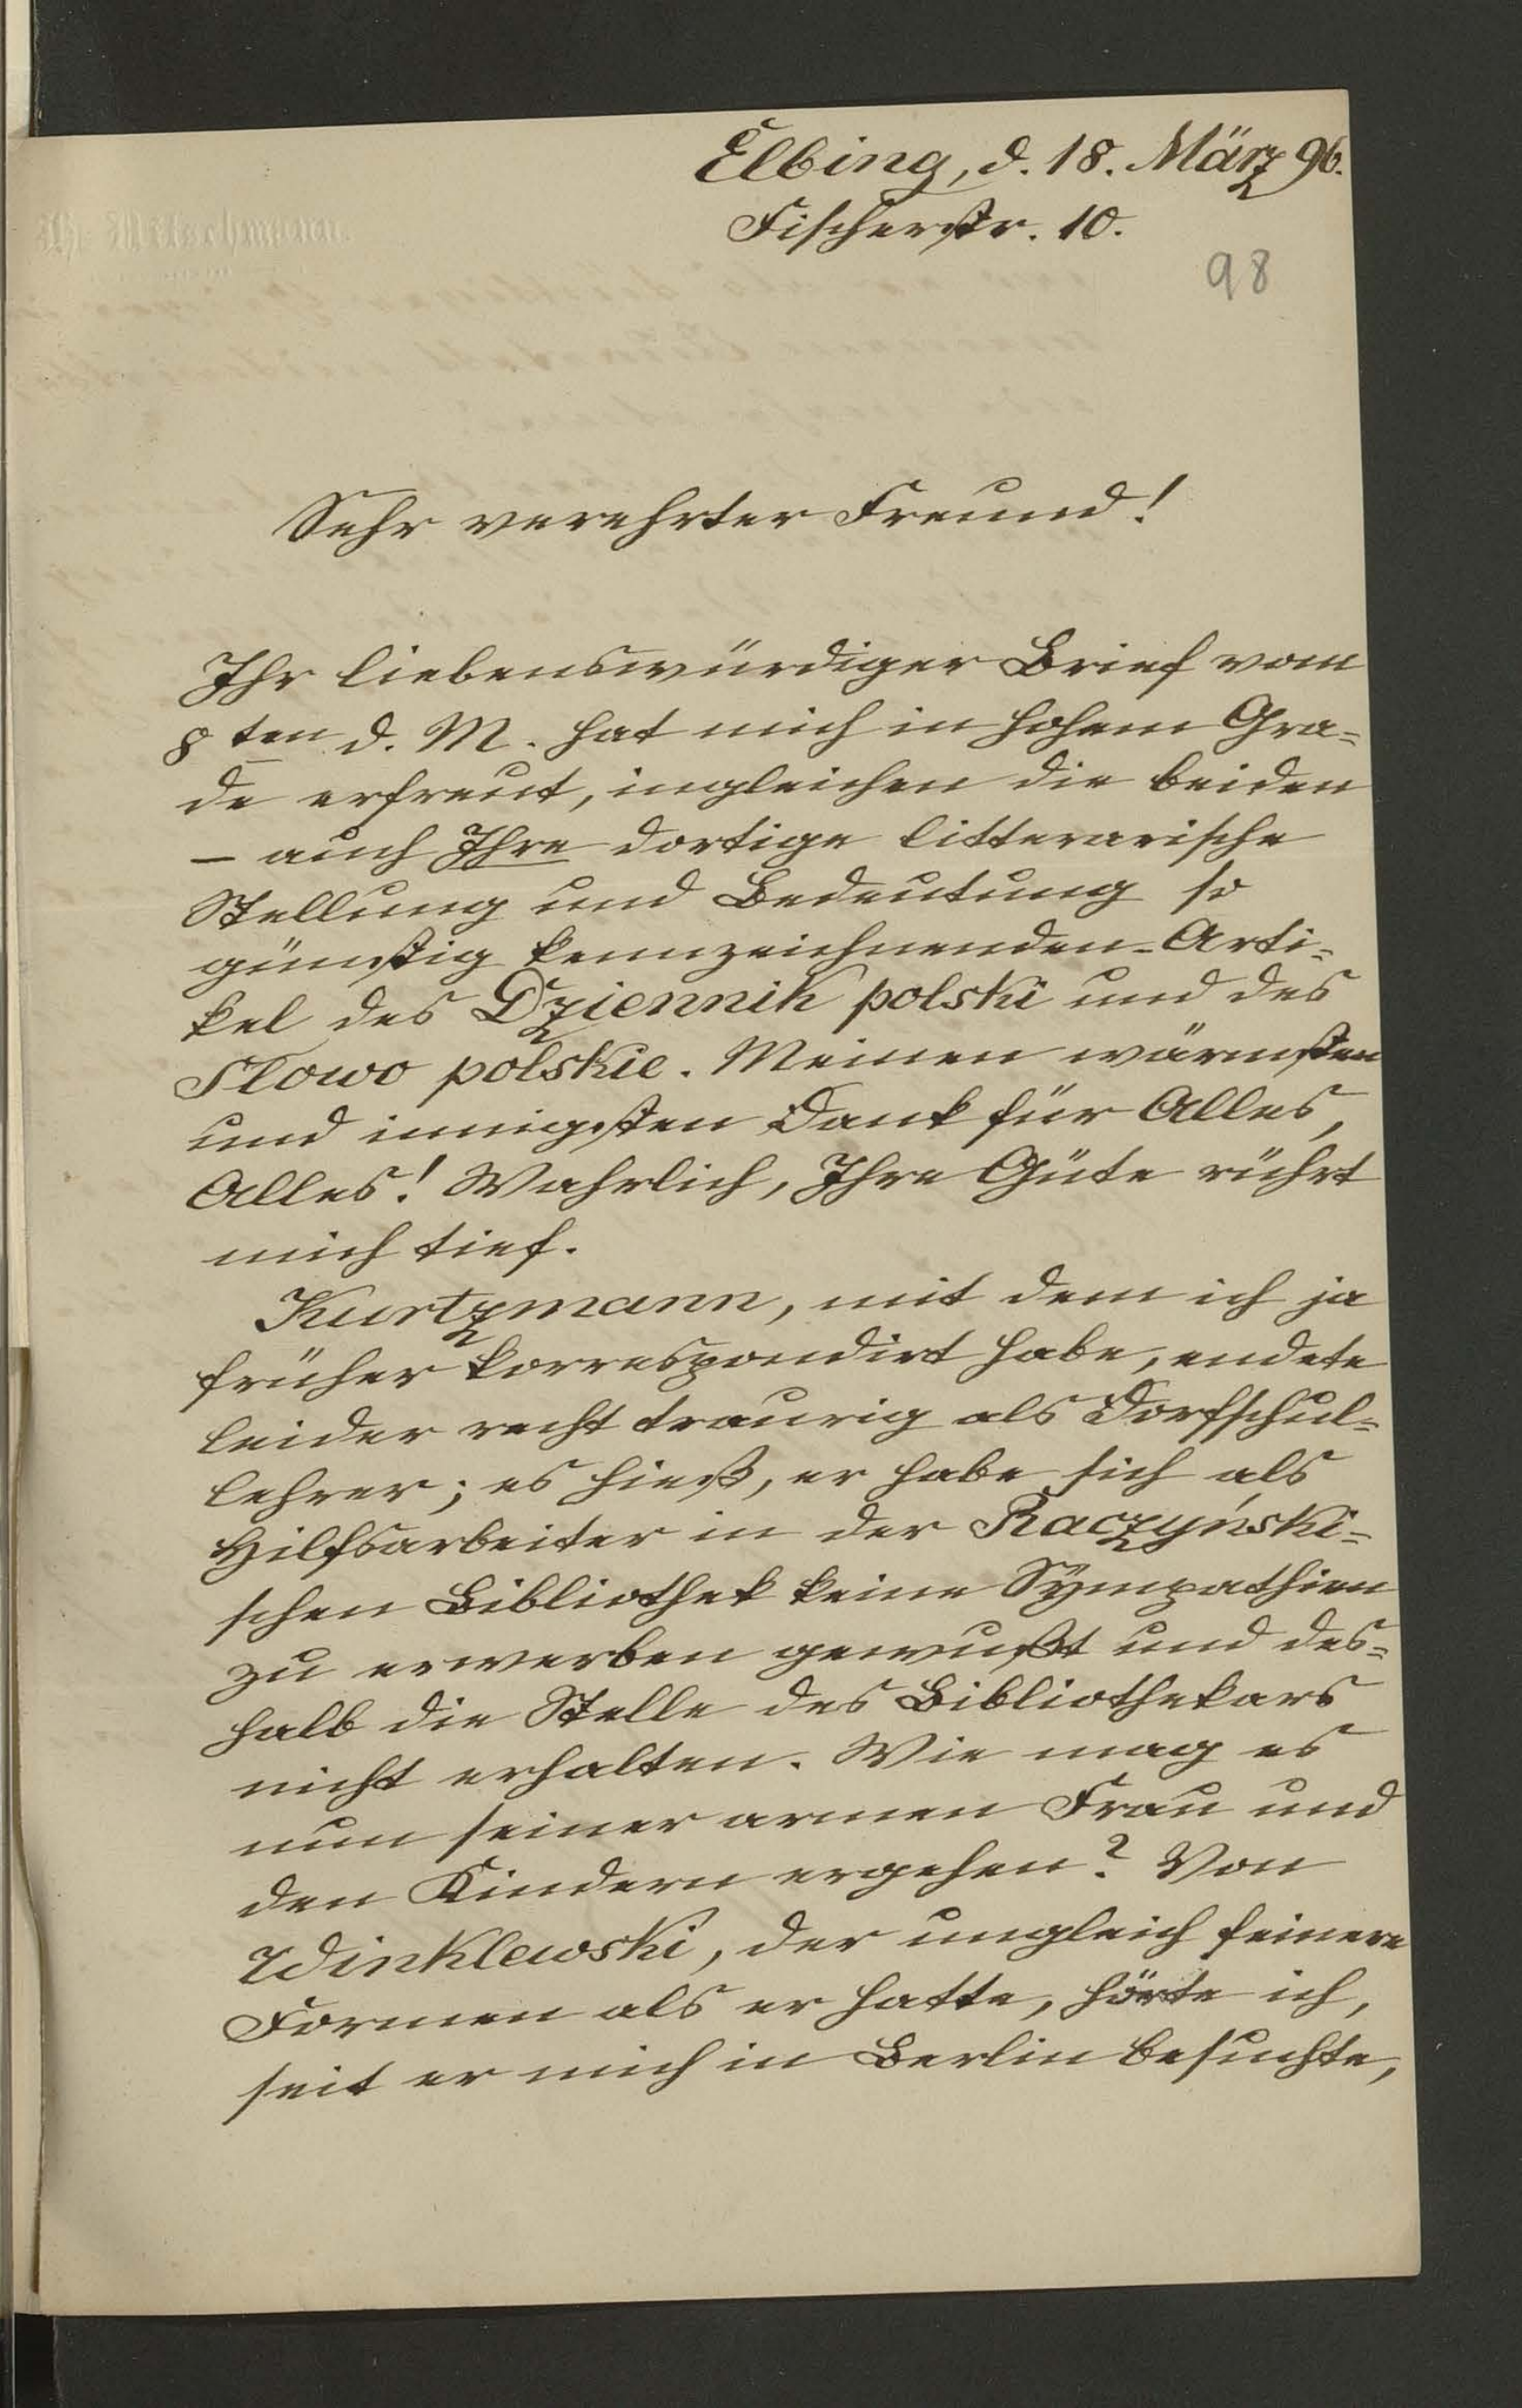 Elbing, d. 18. März 96.
Fischerstr. 10.
98
Sehr verehrter Freund!
Ihr liebenswürdiger Brief vom
8ten d. M. hat mich in hohem Gra=
de erfreut, ingleichen die beiden
– auch Ihre dortige litterarische
Stellung und Bedeutung so
günstig kennzeichnenden – Arti=
kel des Dziennik polski und des
Słowo polskie. Meinen wärmsten
und innigsten Dank für Alles,
Alles! Wahrlich, Ihre Güte rührt
mich tief.
Kurtzmann, mit dem ich ja
früher korrespondirt habe, endete
leider recht traurig als Dorfschul=
lehrer; es hieß, er habe sich als
Hilfsarbeiter in der Raczyński=
schen Bibliothek keine Sympathien
zu erwerben gewußt und des=
halb die Stelle des Bibliothekars
nicht erhalten. Wie mag es
nun seiner armen Frau und
den Kindern ergehen? Von
Winklewski, der ungleich feinere
Formen als er hatte, hörte ich,
seit er mich in Berlin besuchte,